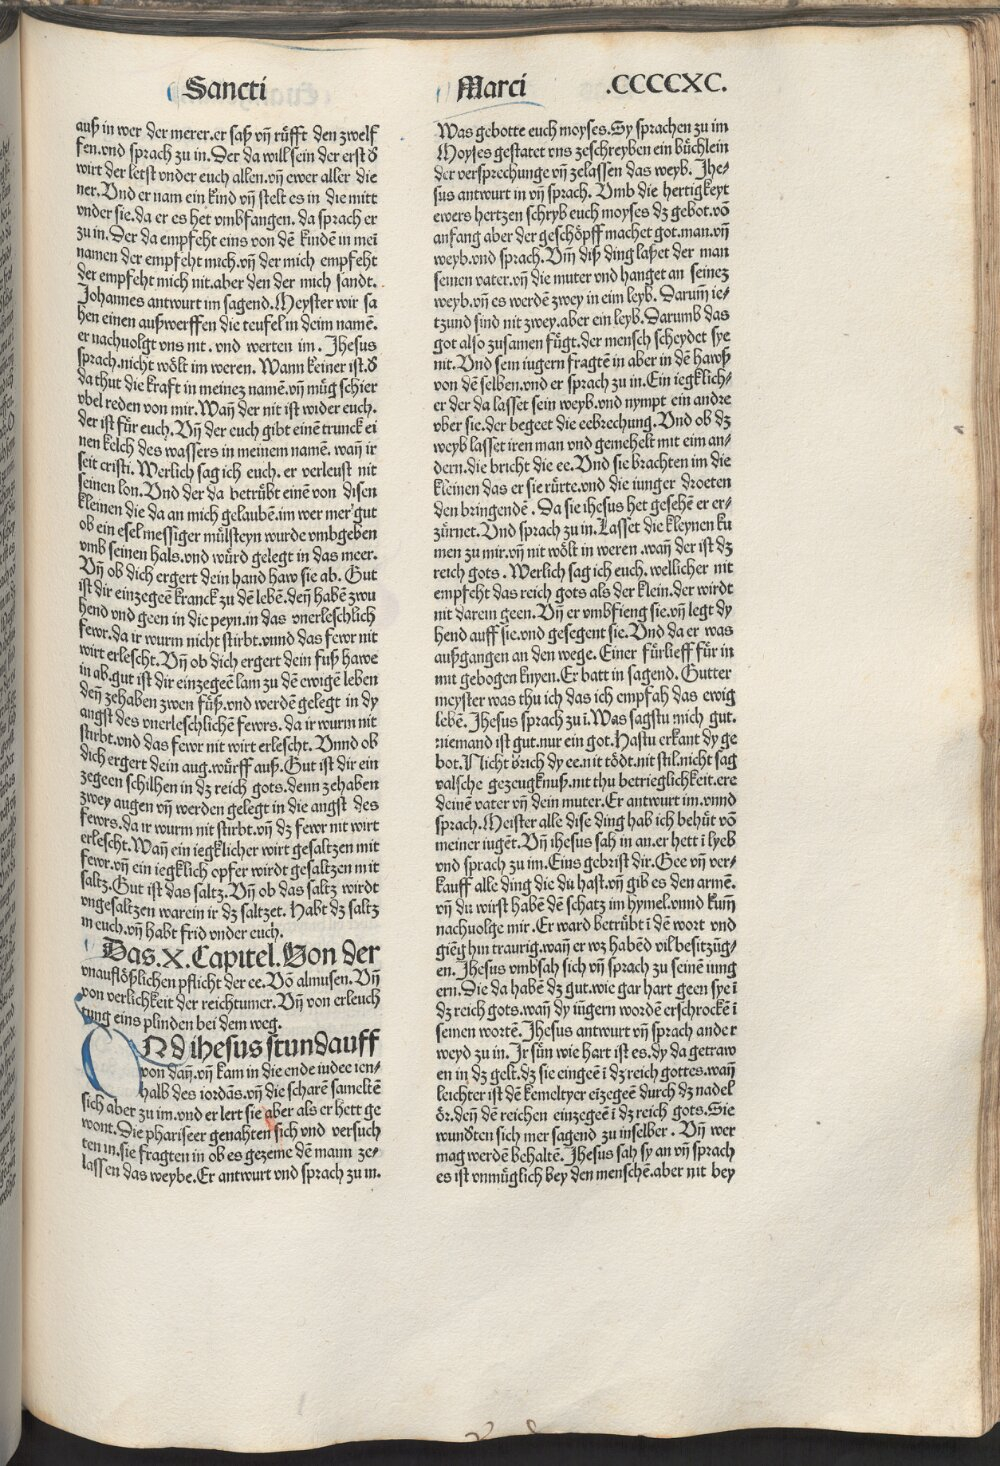 Sancti Marci .CCCCXC.
auß in wer der merer.er saß vñ růfft den zwelf
fen.vnd sprach zu in.Der da will sein der erst d̕
wirt der letst vnder euch allen.vñ ewer aller die
ner.Vnd er nam ein kind vñ stelt es in die mitt
vnder sie.da er es het vmbfangen. da sprach er
zu in.Der da empfeht eins von dē kindē in mei
namen der empfeht mich.vñ der mich empfeht
der empfeht mich nit.aber den der mich sandt.
Johannes antwurt im sagend.Meyster wir sa
hen einen außwerffen die teufel in deim namē.
er nachuolgt vns nit. vnd werten im. Jhesus
sprach.nicht wölt im weren. Wann keiner ist.d̕
da thut die kraft in meinez namē.vñ müg schier
vbel reden von mir.Wañ der nit ist wider euch.
der ist für euch. Vñ der euch gibt einē trunck ei
nen kelch des wassers in meinem namē. wañ ir
seit cristi. Werlich sag ich euch. er verleust nit
seinen lon.Vnd der da betrübt einē von disen
kleinen die da an mich gelaubē.im wer mer gut
ob ein esel messiger mülsteyn wurde vmbgeben
vmb seinen hals.vnd würd gelegt in das meer.
Vñ ob dich ergert dein hand haw sie ab. Gut
ist dir einzegeē kranck zu dē lebē.deñ habē zwu
hend vnd geen in die peyn.in das vnerleschlich
fewr.da ir wurm nicht stirbt.vnnd das fewr nit
wirt erlescht. Vñ ob dich ergert dein fuß hawe
in ab.gut ist dir einzegeē lam zu dē ewigē leben
deñ zehaben zwen füß.vnd werdē gelegt in dy
angst des vnerleschlichē fewrs. da ir wurm nit
stirbt.vnd das fewr nit wirt erlescht. Vnnd ob
dich ergert dein aug.würff auß.Gut ist dir ein
zegeen schilhen in dz reich gots.denn zehaben
zwey augen vñ werden gelegt in die angst des
fewrs.da ir wurm nit stirbt.vñ dz fewr nit wirt
erlescht.Wañ ein iegklicher wirt gesaltzen mit
fewr.vñ ein iegklich opfer wirdt gesaltzen mit
saltz.Gut ist das saltz.Vñ ob das saltz wirdt
vngesaltzen warein ir dz saltzet. Habt dz saltz
in euch.vñ habt frid vnder euch.
Das.X.Capitel.Von der
vnauflößlichen pflicht der ee.Vō almusen.Vñ
von verlichkeit der reichtumer.Vñ von erleuch
tung eins plinden bei dem weg.
VNd ihesus stund auff
von dañ.vñ kam in die ende iudee ien-
halb des iordās.vñ die scharē sameltē
sich aber zu im.vnd er lert sie aber als er hett ge
wont.Die phariseer genahten sich vnd versuch
ten in.sie fragten in ob es gezeme dē mann ze-
lassen das weybe.Er antwurt vnd sprach zu in.
Was gebotte euch moyses.Sy sprachen zu im
Moyses gestatet vns zeschreyben ein büchlein
der versprechunge vñ zelassen das weyb. Jhe-
sus antwurt in vñ sprach. Vmb die hertigkeyt
ewers hertzen schryb euch moyses dz gebot.vō
anfang aber der geschöpff machet got.man.vñ
weyb.vnd sprach. Vm̄ diß ding laßet der man
seinen vater.vñ die muter vnd hanget an seinez
weyb.vñ es werdē zwey in ein leyb. Darum̄ ie-
tzund sind nit zwey.aber ein leyb.Darumb das
got also zusamen fügt.der mensch scheydet sye
nit.Vnd sein iugern fragtē in aber in dē hawß
von dē selben.vnd er sprach zu in.Ein iegklich-
er der da lasset sein weyb.vnd nympt ein andre
vber sie.der begeet die eebrechung.Vnd ob dz
weyb lasset iren man vnd gemehelt mit eim an-
dern.die bricht die ee.Vnd sie brachten im die
kleinen das er sie rürte.vnd die iunger droeten
den bringendē. Da sie ihesus het gesehē er er-
zürnet.Vnd sprach zu in.Lasset die kleynen ku
men zu mir.vñ nit wölt in weren.wañ der ist dz
reich gots. Werlich sag ich euch.wellicher nit
empfeht das reich gots als der klein.der wirdt
nit darein geen.Vñ er vmbfieng sie.vñ legt dy
hend auff sie.vnd gesegent sie.Vnd da er was
außgangen an den wege. Einer fürlieff für in
mit gebogen knyen.Er batt in sagend. Gutter
meyster was thu ich das ich empfah das ewig
lebē. Jhesus sprach zu ī.Was sagstu mich gut.
niemand ist gut.nur ein got.Hastu erkant dy ge
bot.Nicht brich dy ee.nit tödt.nit stil.nicht sag
valsche gezeugknuß.nit thu betrieglichkeit.ere
deinē vater vñ dein muter.Er antwurt im.vnnd
sprach.Meister alle dise ding hab ich behüt vō
meiner iugēt.Vñ ihesus sah in an.er hett ī lyeb
vnd sprach zu im.Eins gebrist dir.Gee vñ ver-
kauff alle ding die du hast.vñ gib es den armē.
vñ du wirst habē dē schatz im hymel.vnnd kum̄
nachuolge mir.Er ward betrübt ī dē wort vnd
giēg hin traurig.wañ er wz habēd vil besitzüg-
en. Jhesus vmbsah sich vñ sprach zu seinē iung
ern.Die da habē dz gut.wie gar hart geen sye ī
dz reich gots.wañ dy iügern wordē erschrockē ī
seinen wortē. Jhesus antwurt vñ sprach ander
weyd zu in. Jr sün wie hart ist es.dy da getraw
en in dz gelt.dz sie eingeē ī dz reich gottes.wañ
leichter ist dē kemeltyer eizegeē durch dz nadel
ör.deñ dē reichen einzegeē ī dz reich gots.Sie
wundrten sich mer sagend zu inselber. Vñ wer
mag werdē behaltē.Jhesus sah sy an vñ sprach
es ist vnmüglich bey den menschē.aber nit bey